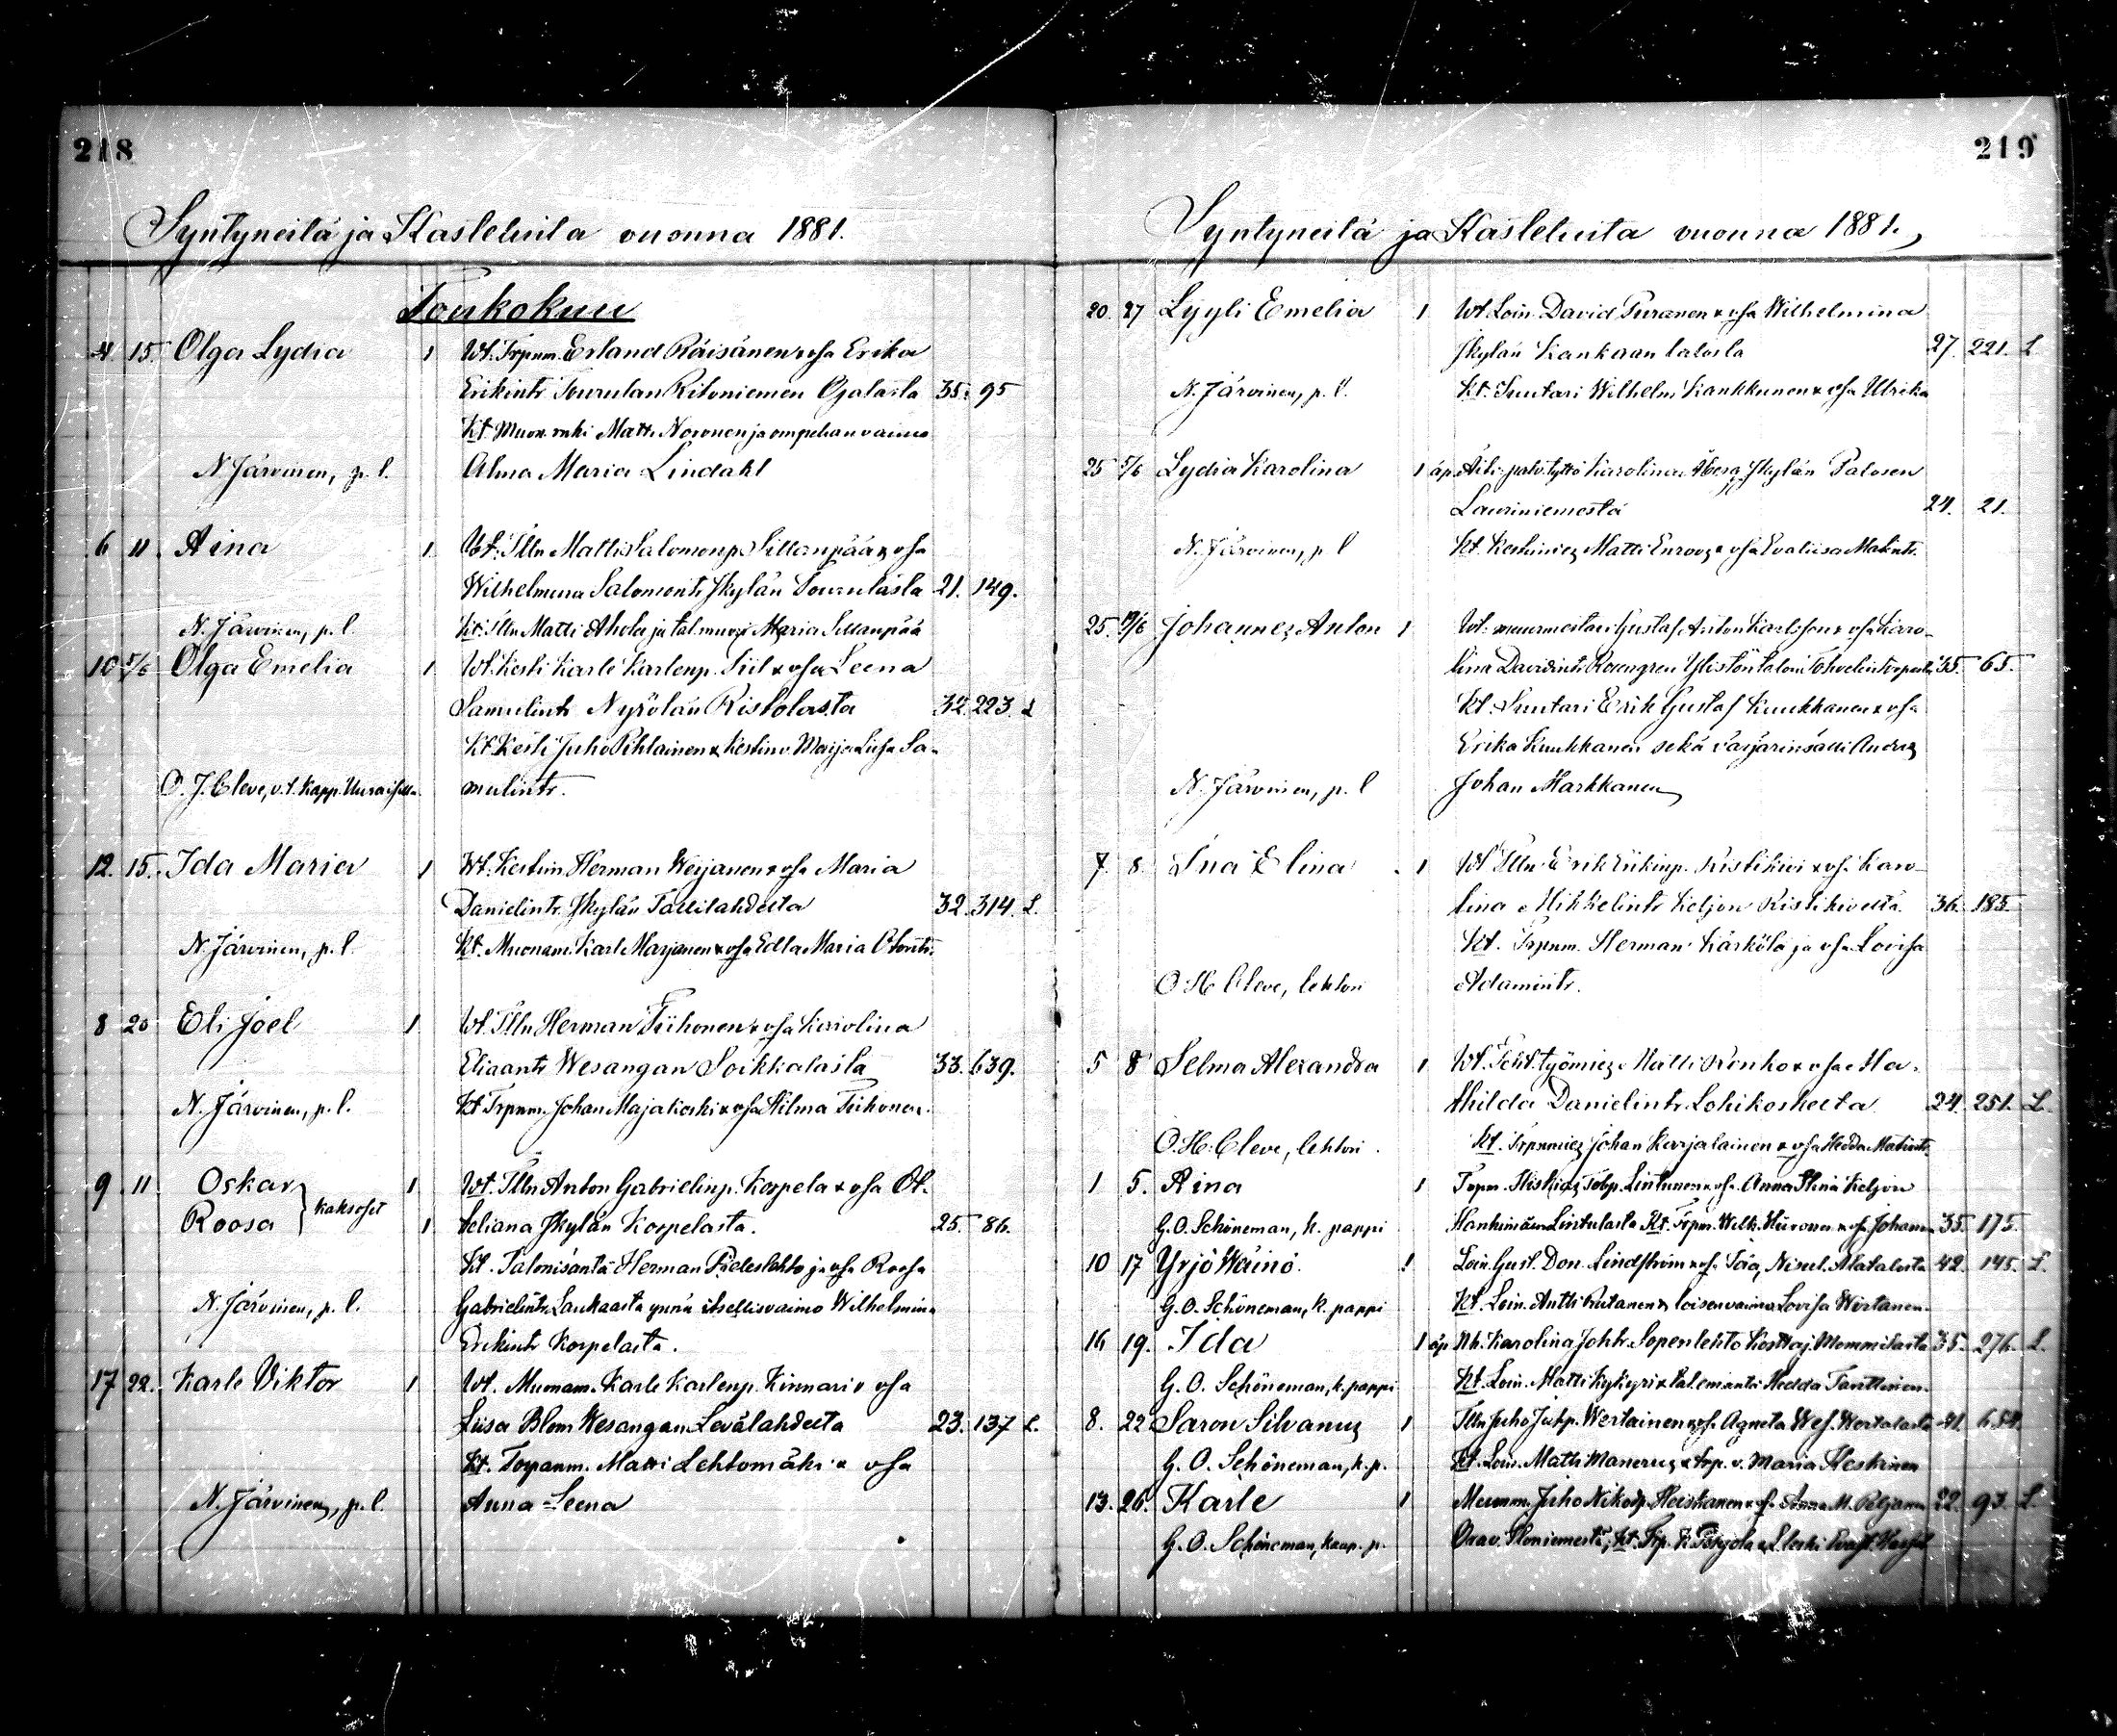 218
Syntyneitä ja Kastetuita vuonna 1881.
Toukokuu
4. 15. Olga Lydia 1 Wt. Trpnm. Erland Räisänen x vsa Erika
Erikintr Tourulan Ritoniemen Ojalasta 35. 95
Kt. Muon. renki Matti Noronen ja ompelian vaimo
N. Järvinen, p. l. Alma Maria Lindahl
6 11 Aina 1 Wt. Tlln Matti Salomonp. Sillanpää x vsa
Wilhelmina Salomontr Jkylän Tourulasta 21. 149.
N. Järvinen, p. l. Kt. Tlln Matti Ahola ja tal. Maria Sillanpää
10 5/6 Olga Emelia 1 Wt. Kesti Karle Karlenp. Siil x vsa Leena
Samulintr Nyrölän Ristolasta 32. 223. L
Kt. Kesti Juho Pihlainen x Kestinv. Maija Liisa Sa-
O. J. Cleve, v. t. Kapp. mulintr.
12. 15. Ida Maria 1 Wt. Kestin Herman Weijanen x vsa Maria
Danielintr. Jkylän Taililahdesta 32. 314. L.
N. Järvinen, p. l. Kt. Muonam. Karle Marjonen x vsa Edla Maria
8 20 Eli Joel 1 Wt. Tlln Herman Tiihonen x vsa Karolina
Eliaantr Wesangan Soikkalasta 33. 639.
N. Järvinen, p. l. Kt. Trpnm. Johan Majakoski x vsa Hilma Tiihonen.
9 11 Oskar 1 Wt. Tlln Anton Gabrielinp. Korpela x vsa Ot-
Roosa } kaksoset 1 teliana Jkylän Korpelasta. 25. 86.
Kt. Talonisäntä Herman Pieleslehto ja vsa Roosa
N. Järvinen, p. l. Gabrielintr Laukaasta ynnä itsellisvaimo Wilhelmina
Erikintr Korpelasta.
17 22. Karle Viktor 1 Wt. Muonam. Karle Karlenp. Kinnari x vsa
Liisa Blom Wesangan Levälahdesta 23. 137 L.
Kt. Torpanm. Matti Lehtomäki x vsa
N. Järvinen, p. l. Anna-Leena
219
Syntyneitä ja Kastetuita vuonna 1881.
20. 27 Lyyli Emelia 1 Wt. Loin. David Puranen x vsa Wilhelmina
Jkylän Kankaan talosta 27. 221. L
N. Järvinen, p. l. Kt. Suutari Wilhelm Kankkunen x vsa Ulrika
25 5/6 Lydia Karolina 1 äp. Äiti: palv. tyttö Karolina Åberg Jkylän Palosen
Lauriniemestä 24. 21.
N. Järvinen, p. l Kt. Keskiniez Matti x vsa Evaliisa Matintr
25. 12/6 Johannes Anton 1 Wt. muurmestari Gustaf Anton Karlsson x vsa Karo-
lina Davidintr Rosengren Ylistön talon 35. 65.
Kt. Suutari Erik Gustaf Kuukkanen x vsa
Erika Kuukkanen sekä värjärinsälli Anders
N. Järvinen, p. l Johan Markkanen
7. 8 Ina Elina 1 Wt Tlln Erik Erikinp. Ristikivi x vsa Karo-
lina Mikkelintr Keljon Ristikivestä 36. 185.
Kt. Trpnm. Herman Kärkölä ja vsa Lovisa
O H Cleve, lehtori Adamintr.
5 8 Selma Alexandra 1 Wt. Teht. työmiez Matti Renko x vsa Ma-
thilda Danielintr. Lohikoskelta 24. 251. L.
O. H. Cleve, lehtori. Kt. Trpnmiez Johan Karjalainen x vsa Hedda Matintr
1 5. Aina 1 Trpm. Hiskiaz Tobp. Lintunen x vsa Anna Stina Keljon
G. O. Schöneman, k. pappi Lintulasta Kt. Trpm. Wilh. Hiironen x vsa Johanna 35. 175.
10 17 Yrjö Wäinö. 1 Loin. Gust. Don. Lindström x vsa Ida, Nisul. Alatalosta 42. 145. L.
G. O. Schöneman, k. pappi Kt. Loin. Antti Rutanen x loisenvaimo Lovisa Wirtanen.
16 19. Ida 1 äp Nk. Karolina Johtr. Sopenlehto 35. 276. L.
G. O. Schöneman, k. pappi Kt. Loin. Matti Kykyri x tal. emäntä Hedda Tarttinen.
8. 22 Saron Silvanus 1 Tlln Juho Juhp. Wertainen x vsa Agneta Wes. Wertalasta 41. 654.
G. O. Schöneman, k. p. Kt. Loin. Matti Manerus x trp. v. Maria Heskinen
13. 26. Karle 1 Muonm. Juho Nikodp. Heiskanen x vsa Anna M. 22. 93 L.
G. O. Schöneman, kaup. p.